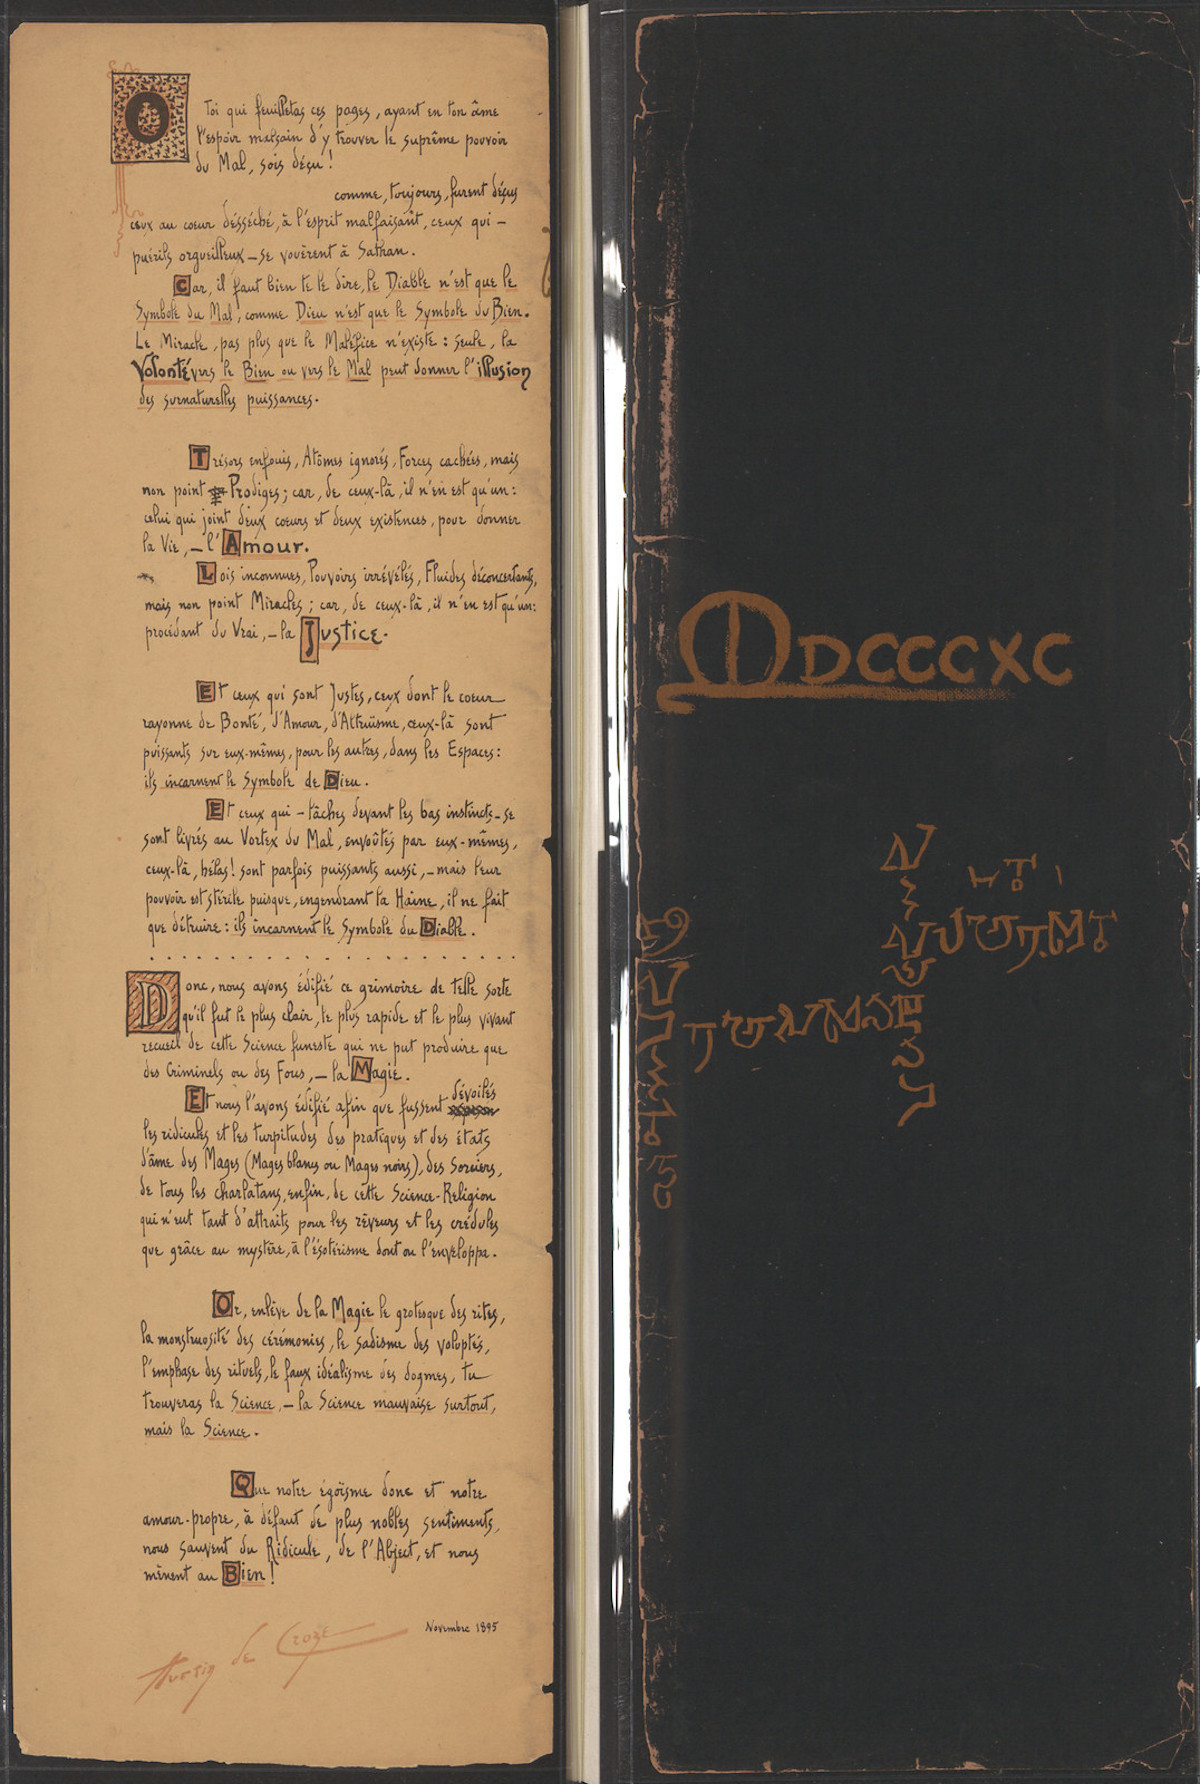 O Toi qui feuilletas ces pages, ayant en ton âme
l'espoir malsain d'y trouver le suprême pouvoir
du Mal, sois déçu !
comme, toujours, furent déçus
ceux au cœur désséché, à l'esprit malfaisant, ceux qui –
puérils orgueilleux – se vouèrent à Sathan.
Car, il faut bien te le dire, le Diable n'est que le
Symbole du Mal, comme Dieu n'est que le Symbole du Bien.
Le Miracle, pas plus que le Maléfice n'existe : seule, la
Volonté vers le Bien ou vers le Mal peut donner l'illusion
des surnaturelles puissances.
Trésors enfouis, Atômes ignorés, Forces cachées, mais
non point Prodiges ; car, de ceux-là, il n'en est qu'un :
celui qui joint deux cœurs et deux existences, pour donner
la Vie, – l'Amour.
Lois inconnues, Pouvoirs irrévélés, Fluides déconcertants,
mais non point Miracles ; car, de ceux-là, il n'en est qu'un :
procédant du Vrai, – la Justice.
Et ceux qui sont Justes, ceux dont le cœur
rayonne de Bonté, d'Amour, d'Altruisme, ceux-là sont
puissants sur eux-mêmes, pour les autres, dans les Espaces :
ils incarnent le Symbole de Dieu.
Et ceux qui – lâches devant les bas instincts – se
sont livrés au Vortex du Mal, envoûtés par eux-mêmes,
ceux-là, hélas ! sont parfois puissants aussi, – mais leur
pouvoir est stérile puisque, engendrant la Haine, il ne fait
que détruire : ils incarnent le Symbole du Diable.
Donc, nous avons édifié ce grimoire de telle sorte
qu'il fut le plus clair, le plus rapide et le plus vivant
recueil de cette Science funeste qui ne put produire que
des Criminels ou des Fous, – la Magie.
Et nous l'avons édifié afin que fussent dévoilés
les ridicules et les turpitudes des pratiques et des états
d'âme des Mages (Mages blancs ou Mages noirs), des Sorciers,
de tous les charlatans, enfin, de cette Science-Religion
qui n'eut tant d'attraits pour les rêveurs et les crédules
que grâce au mystère, à l'ésotérisme dont on l'enveloppa.
Or, enlève de la Magie le grotesque des rites,
la monstruosité des cérémonies, le sadisme des voluptés,
l'emphase des rituels, le faux idéalisme des dogmes, tu
trouveras la Science, – la Science mauvaise surtout,
mais la Science.
Que notre égoïsme donc et notre
amour-propre, à défaut de plus nobles sentiments,
nous sauvent du Ridicule, de l'Abject, et nous
mènent au Bien !
Novembre 1895
Austin de Croze
MDCCCXC